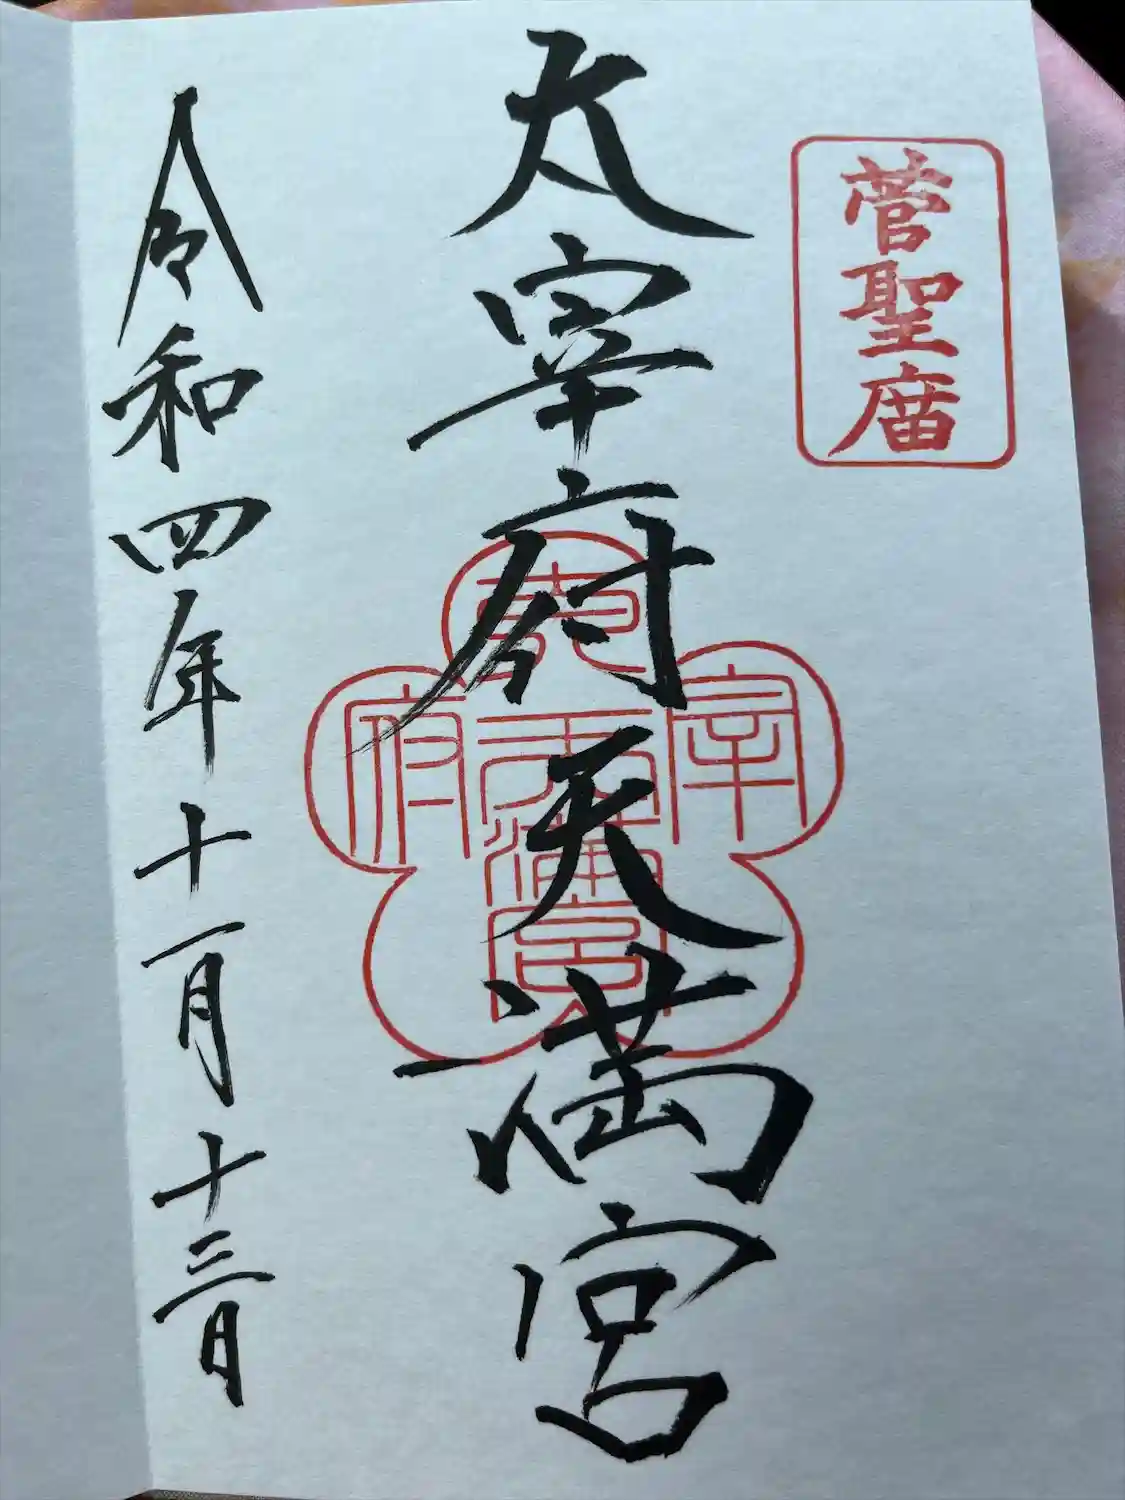 菅聖庿
太宰府天満宮
宰
府
天満宮
令和四年十一月十三日